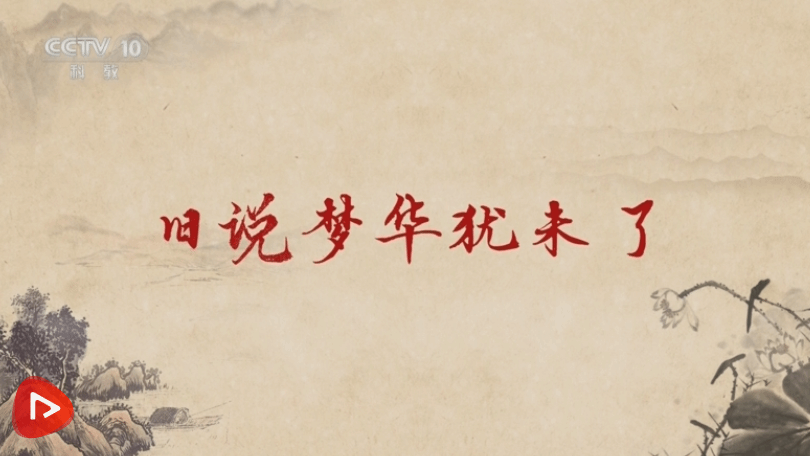 CCTV 10
科教
旧说梦华犹未了